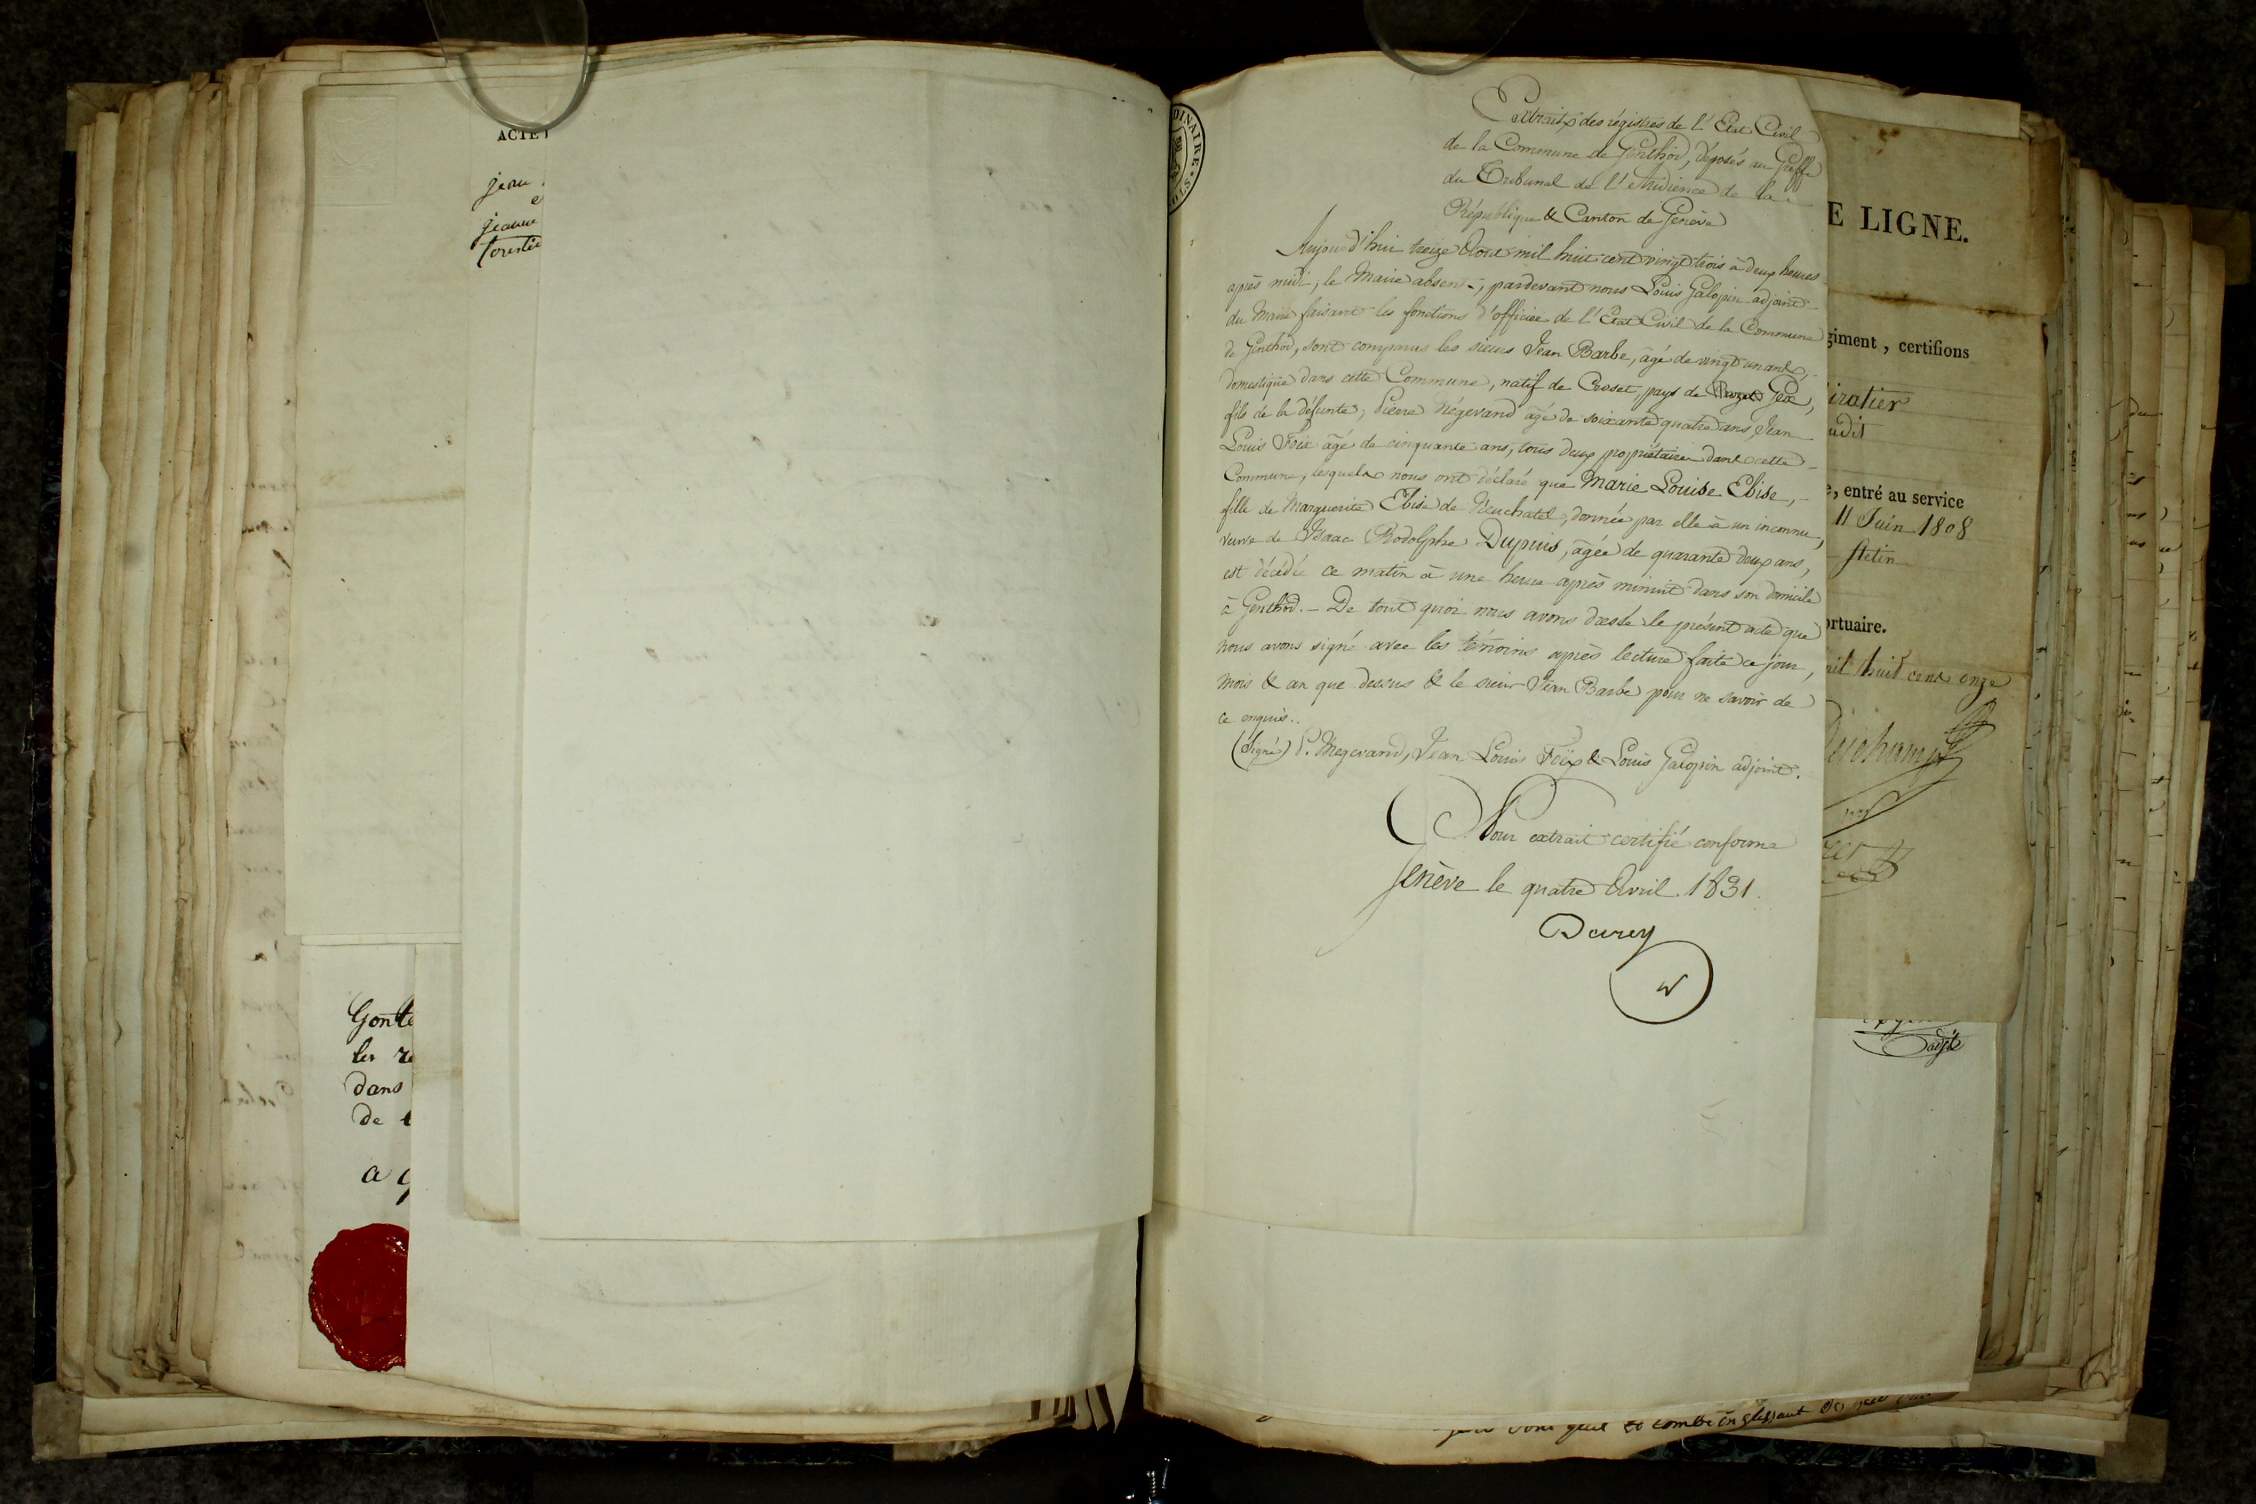 ACTE
jeau
jeanne
Gonte
les re
dans
De
a
DINAIRE
Extrait des régistres de l'Etat Civil
de la Commune de Genthod, déposés au Greffe
du Tribunal de l'Audience de la
République & Canton de Genève
Aujourd'hui treize Aout mil huit cent vingt trois à deux heures
après midi, le Maire absent, pardevant nous Louis Galopin adjoint
du Maire faisant les fonctions d'officier de l'Etat Civil de la Commune
de Genthod, sont comparus les sieurs Jean Barbe, âgé de vingt un ans,
domestique dans cette Commune, natif de Croset, pays de Gex,
fils de la défunte, Pierre Mégevand âgé de soixante quatre ans, Jean
Louis Foëx âgé de cinquante ans, tous deux propriétaires dans cette
Commune, lesquels nous ont déclaré que Marie Louise Ebise,
fille de Marguerite Ebise de Neuchatel, donnée par elle à un inconnu,
veuve de Isaac Rodolphe Dupuis, âgée de quarante deux ans,
est décédée ce matin à une heure après minuit dans son domicile
à Genthod. – De tout quoi nous avons dressé le présent acte que
nous avons signé avec les témoins après lecture faite ce jour,
mois & an que dessus & le sieur Jean Barbe pour ne savoir de
ce enquis.
(Signé) P. Megevand, Jean Louis Foëx & Louis Galopin adjoint.
Pour extrait certifié conforme
Genève le quatre Avril 1831.
Durey
E LIGNE.
giment, certifions
iratier
udit
e, entré au service
11 Juin 1808
Stetin
ortuaire.
mil huit cent onze